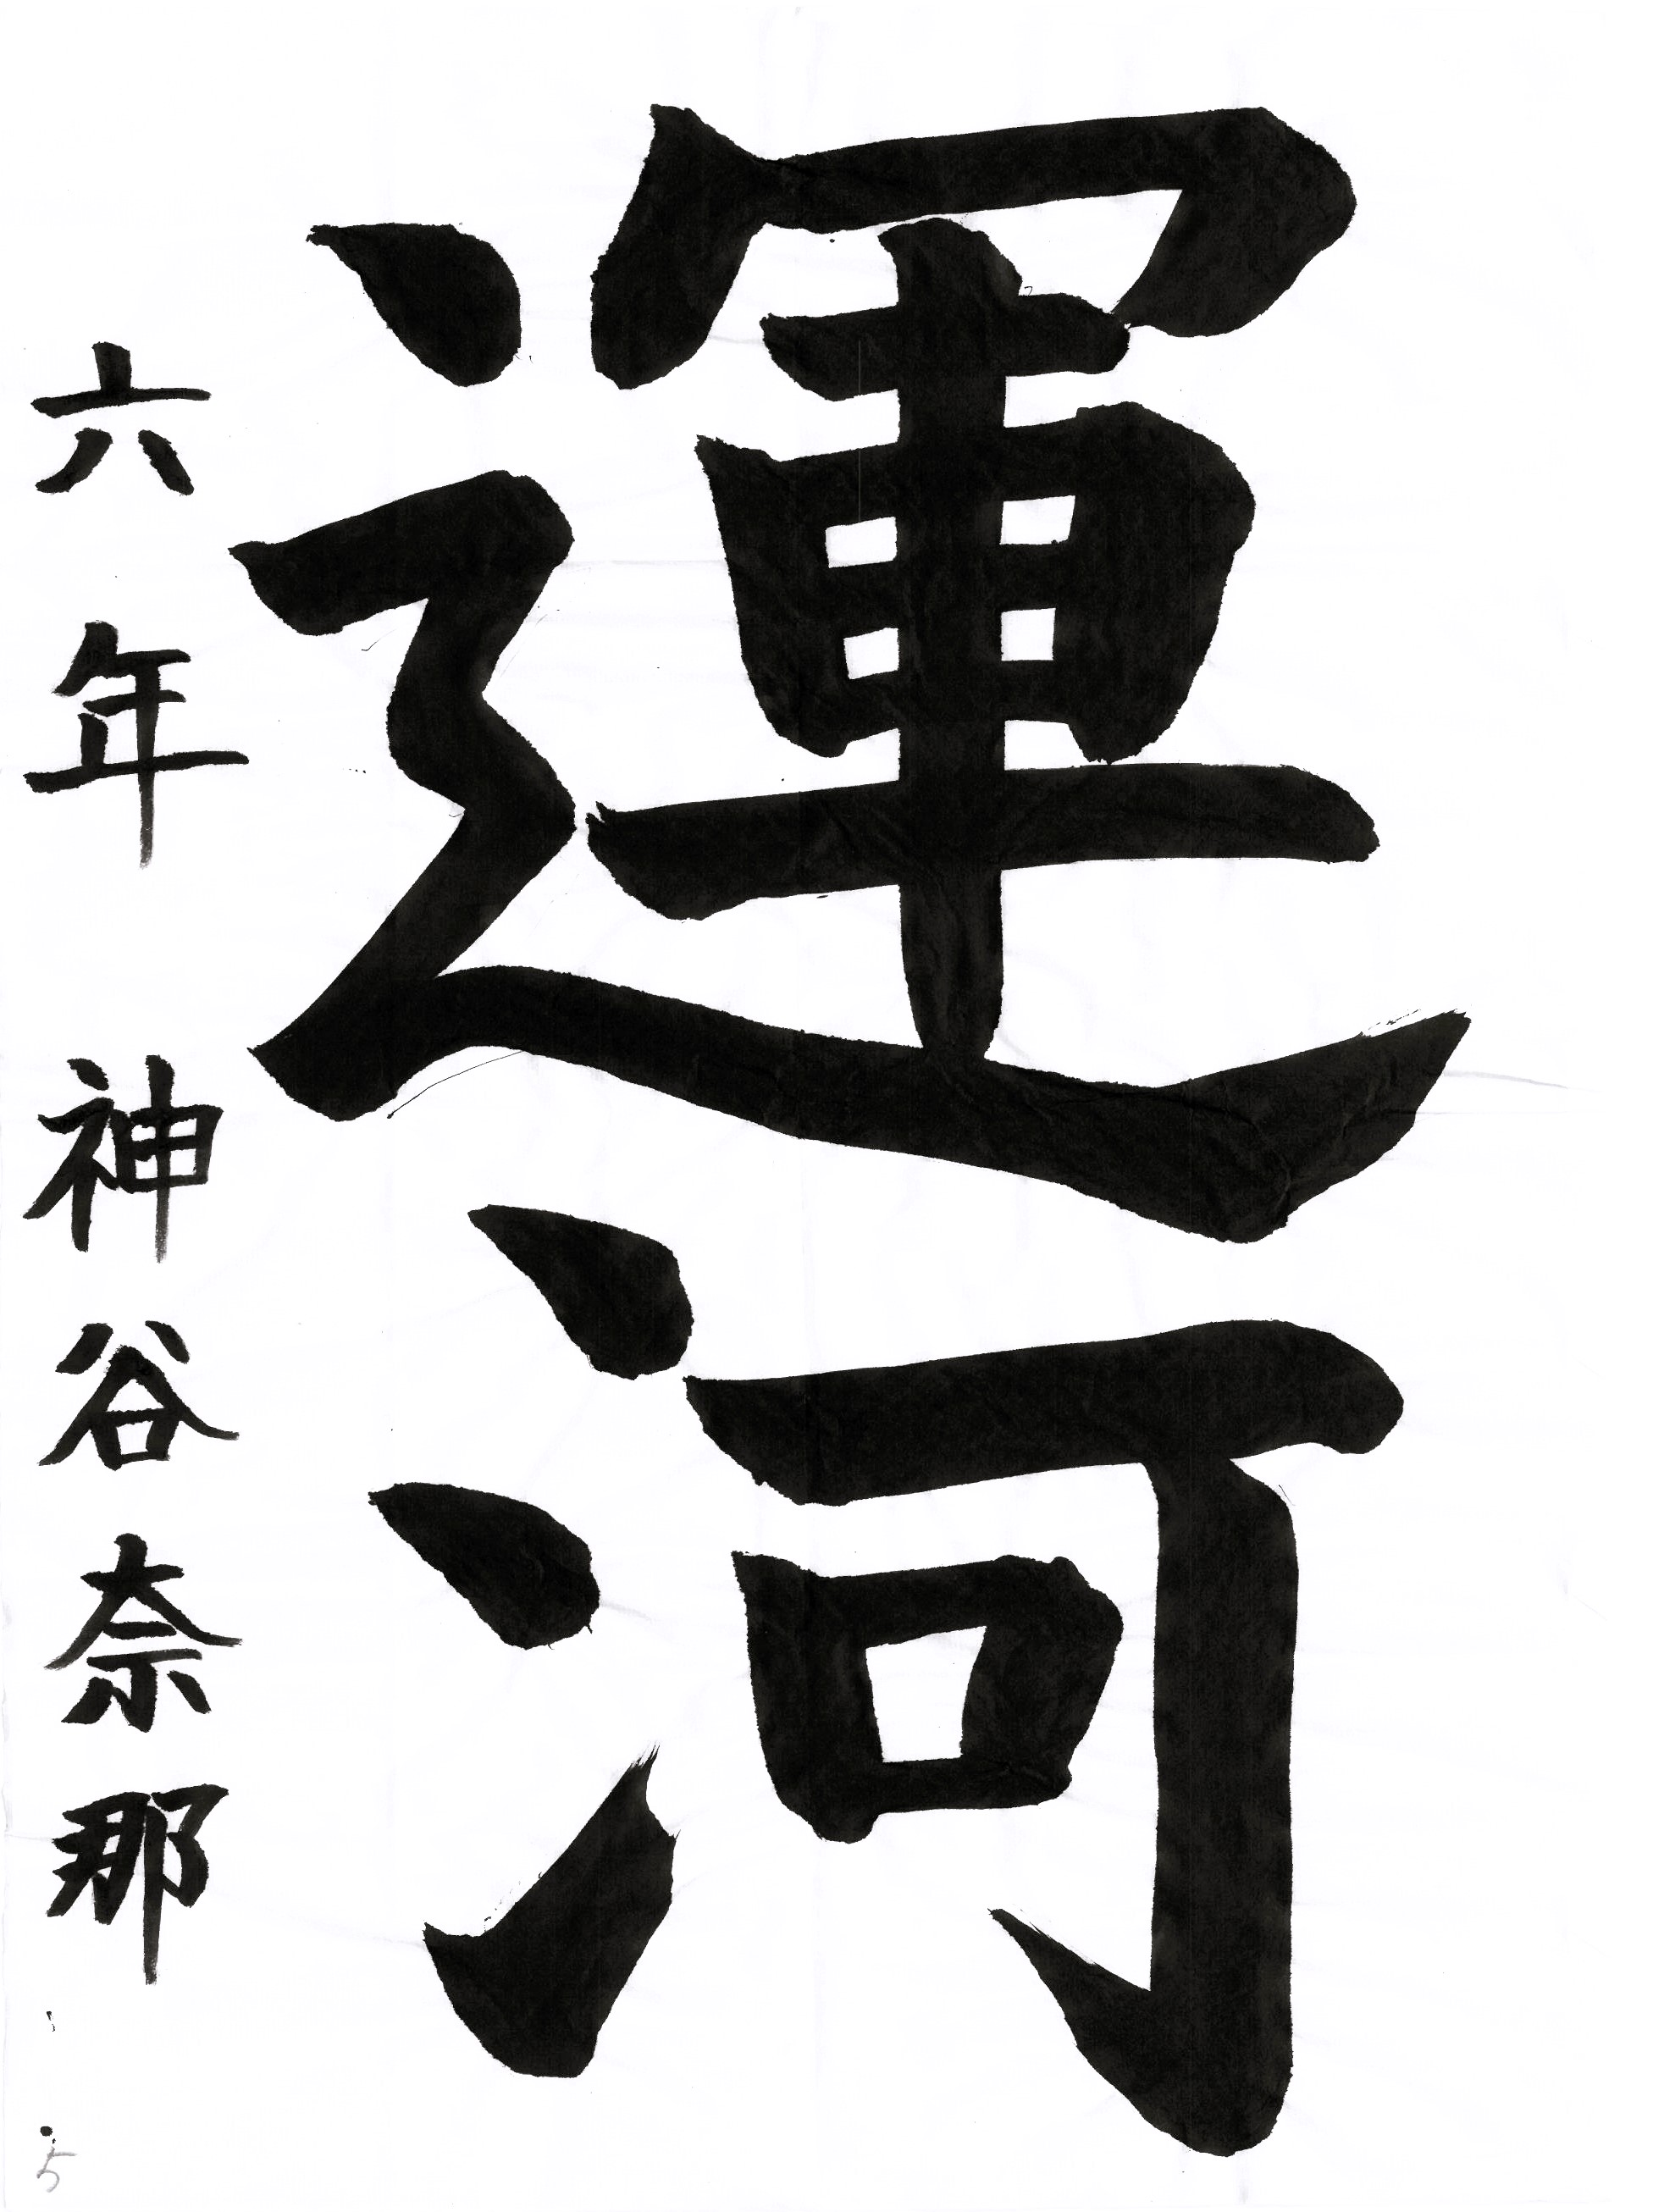 運河
六年 神谷奈那
5